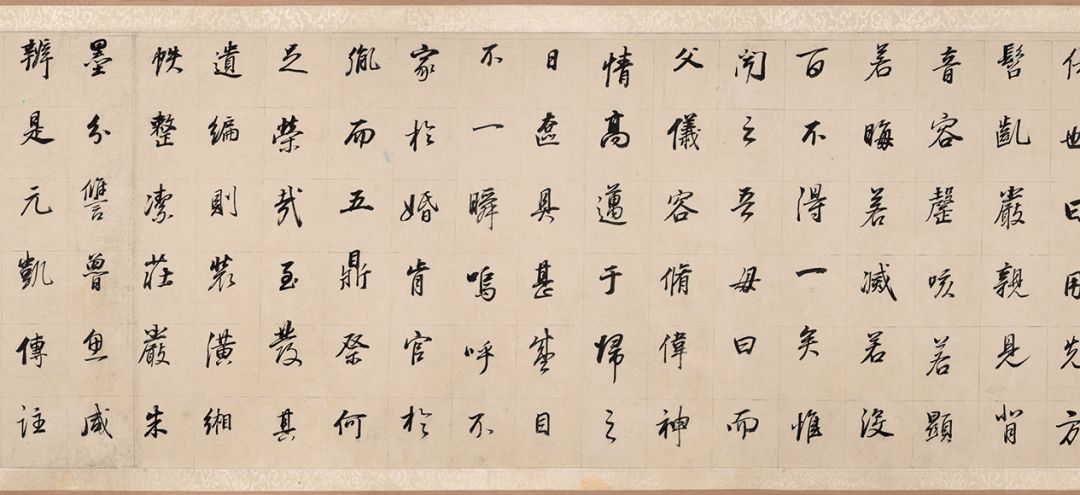 髫齓嚴親見背
音容罄咳若顯
若晦若滅若没
百不得一矣惟
聞之吾母曰而
父儀容脩偉神
情高邁于歸之
日奩具甚盛目
不一瞬嗚呼不
家於婚肯官於
胤而五鼎祭何
足榮哉至發其
遺編則裝潢緗
帙整潔莊嚴朱
墨分讐魯魚咸
辨是元凱傳註